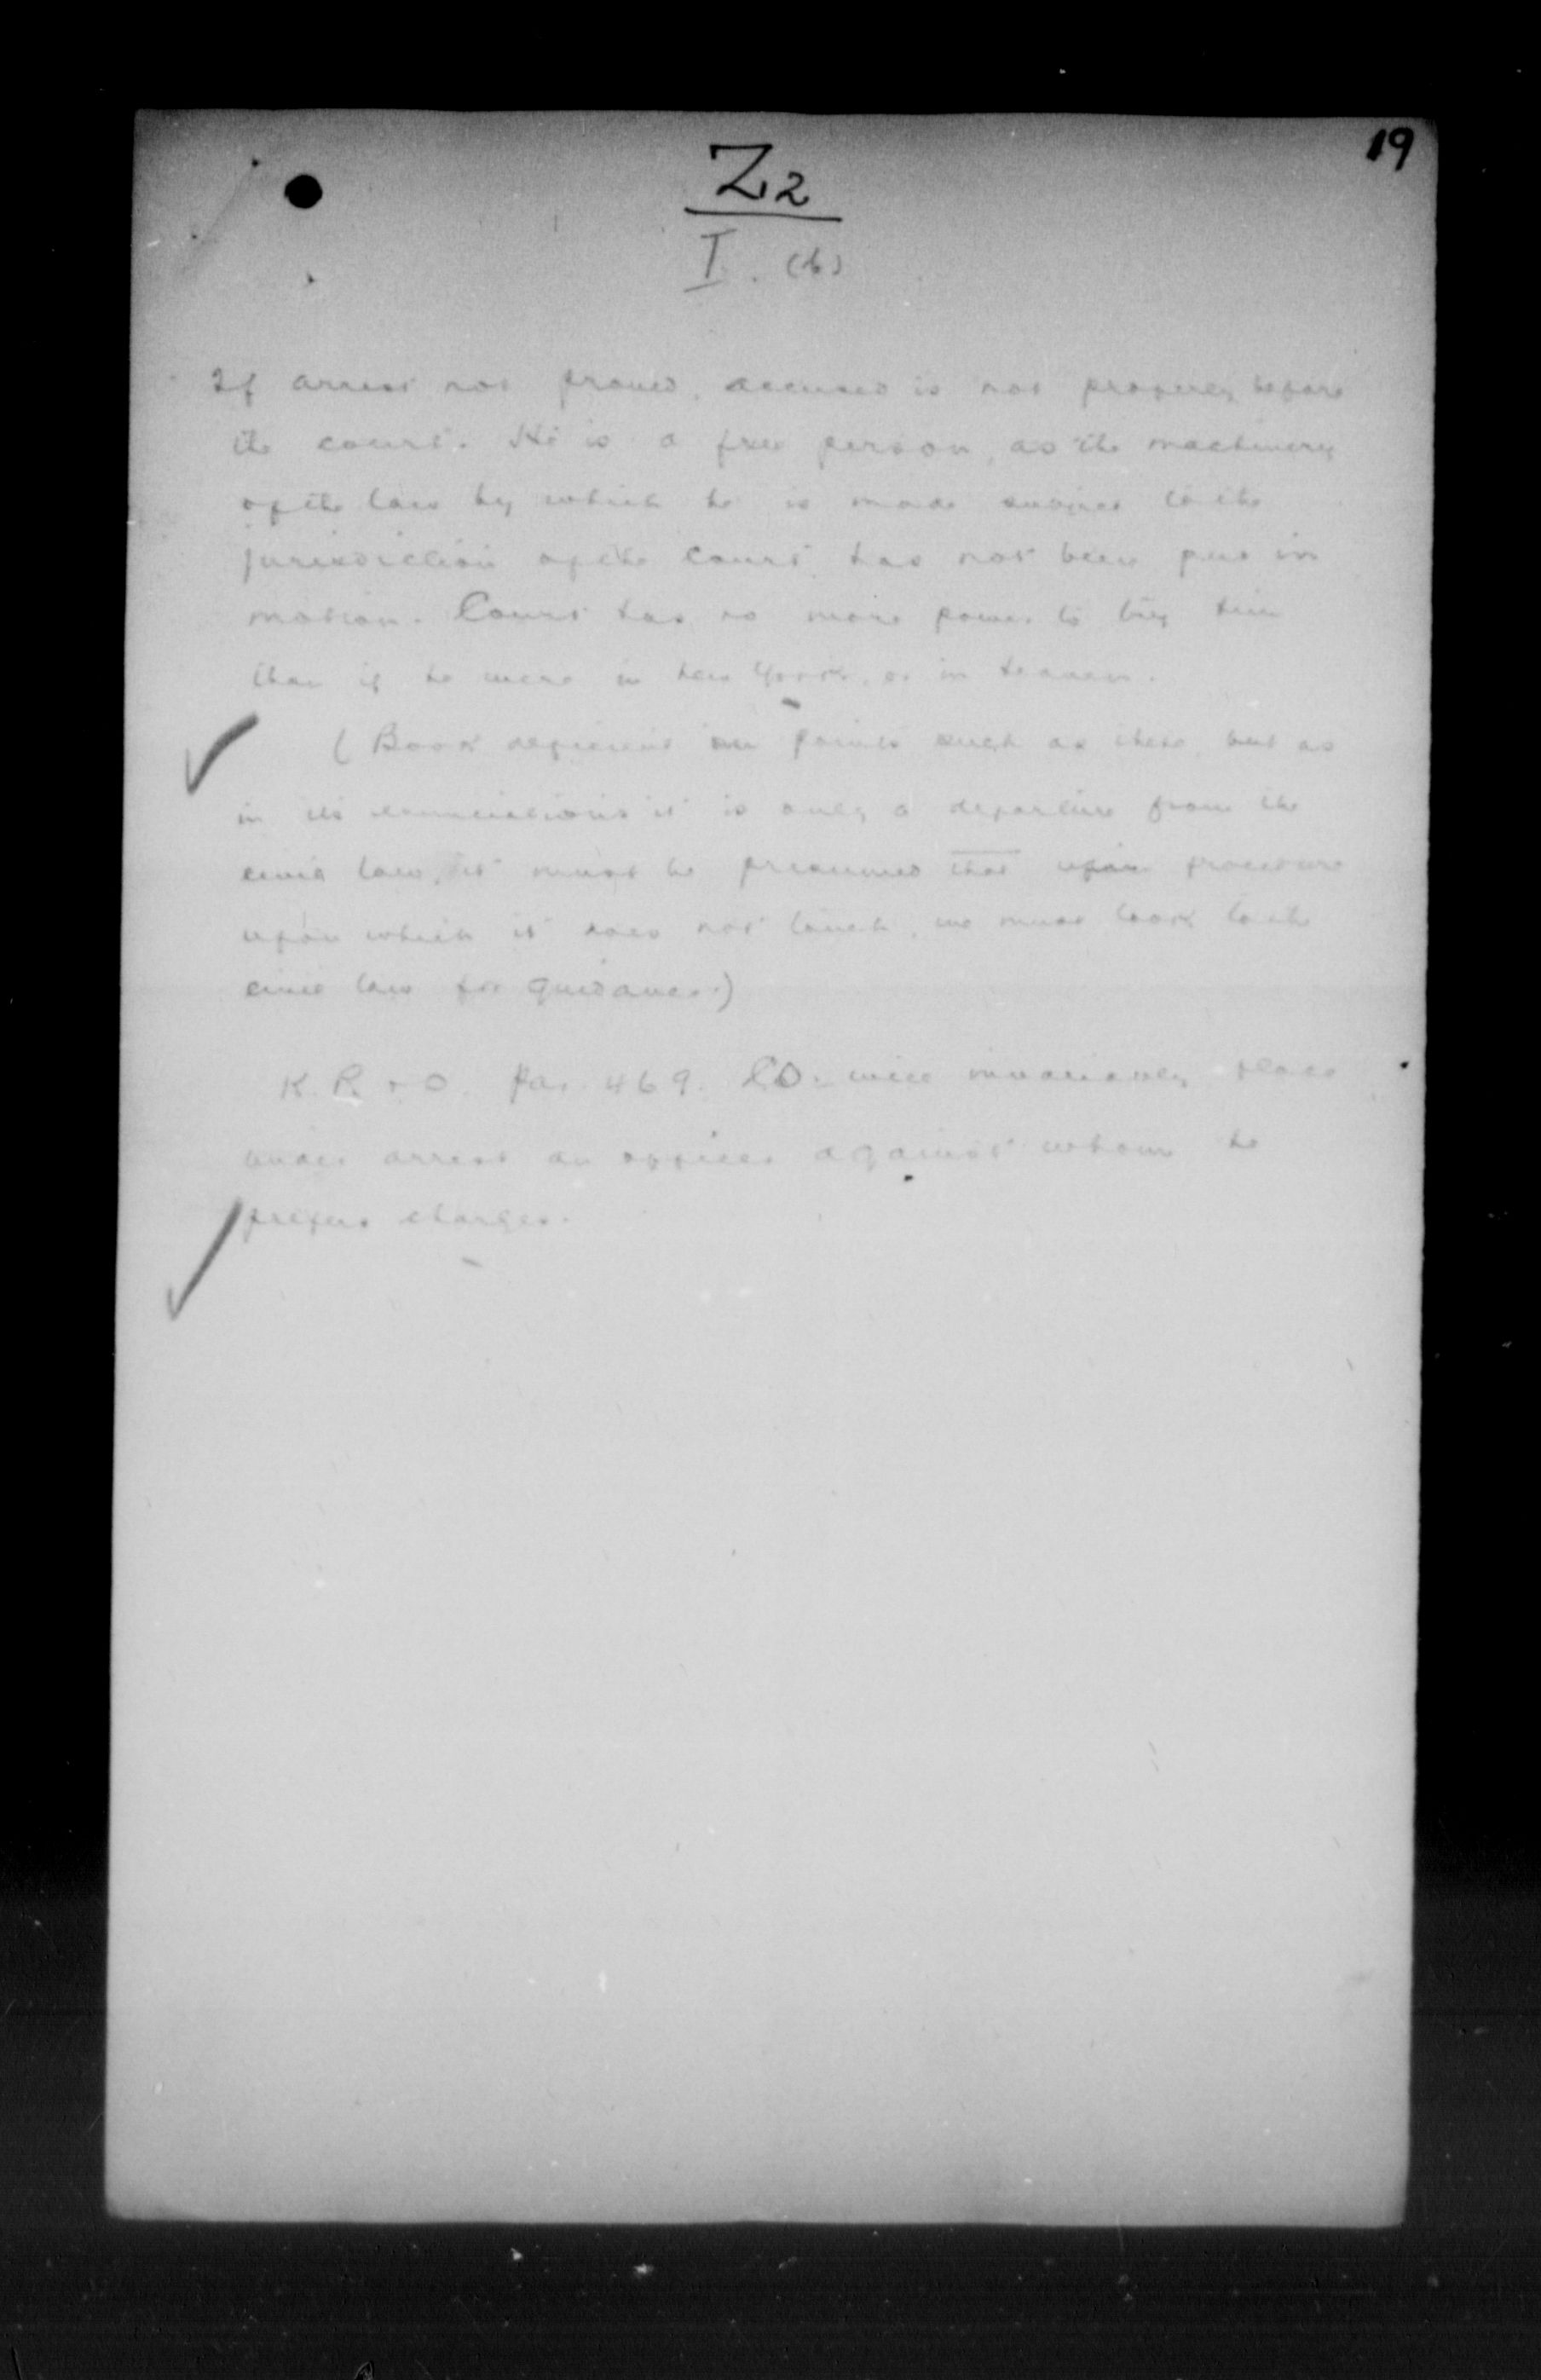 19
Z2
I. (b)
If arrest not proved, accused is not properly before
the court. He is a free person, as the machinery
of the law by which he is made subject to the
jurisdiction of the court has not been put in
motion. Court has no more power to try him
than if he were in New York, or in heaven.
( Book deficient on points such as these, but as
in its enunciations it is only a departure from the
civil law, it must be presumed that upon procedure
upon which it does not touch, we must look to the
civil law for guidance.)
K. R. & O. Par. 469. CO. will invariably place
under arrest an officer against whom he
prefers charges.